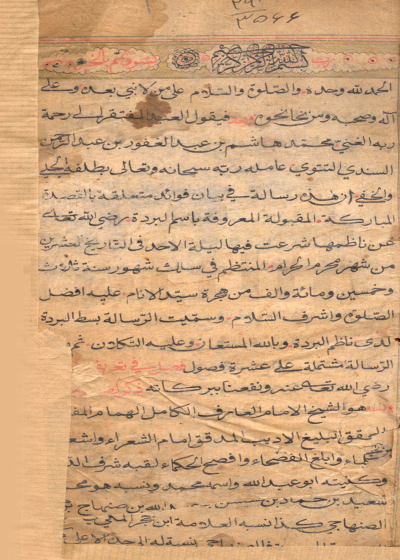 ٣٥٦٦
بسم الله الرحمن الرحيم
الحمد لله وحده والصلوة والسلام على من لا نبي بعده وعلى
آله وصحبه ومن نحا نحوه وبعد فيقول العبد المفتقر الى رحمة
ربه الغني محمد هاشم بن عبد الغفور بن عبد الرحمن
السندي التتوي عامله ربه سبحانه وتعالى بلطفه الجلي
والخفي ان هذه رسالة في بيان فوائد متعلقة بالقصيدة
المباركة المقبولة المعروفة باسم البردة رضي الله تعالى
عن ناظمها شرعت فيها ليلة الاحد في التاريخ العشرين
من شهر محرم الحرام المنتظم في سلك شهور سنة ثلاث
وخمسين ومائة والف من هجرة سيد الانام عليه افضل
الصلوة واشرف السلام وسميت الرسالة بسط البردة
لدى ناظم البردة وبالله المستعان وعليه التكلان ثم
الرسالة مشتملة على عشرة فصول
رضي الله تعالى عنه ونفعنا ببركاته
هو الشيخ الامام العارف الكامل الهمام
المحقق البليغ الاديب المدقق امام الشعراء واشعر
العلماء وابلغ الفصحاء وافصح الحكماء لقبه شرف
وكنيته ابو عبد الله واسمه محمد ونسبه هو
سعيد بن حماد بن محسن بن عبد الله بن صنهاج
الصنهاجي كذا نسبه العلامة ابن حجر المكي